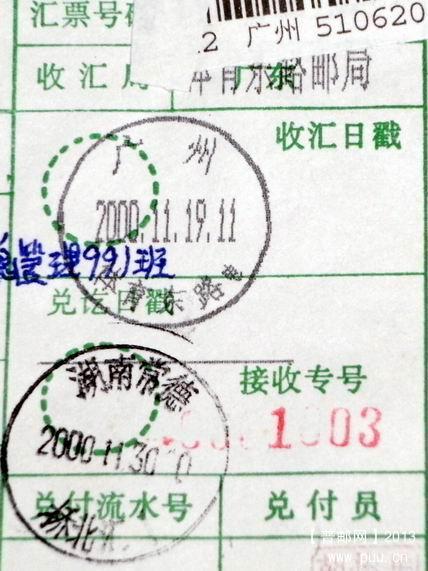 汇票号码
2 广州 510620
收汇局
体育东路邮局
收汇日戳
广州
2000.11.19.11
体育东路
管理991班
兑讫日戳
湖南常德
接收专号
1003
2000.11.30
兑付流水号
兑付员
【晋邮网】2013
www.puu.cn